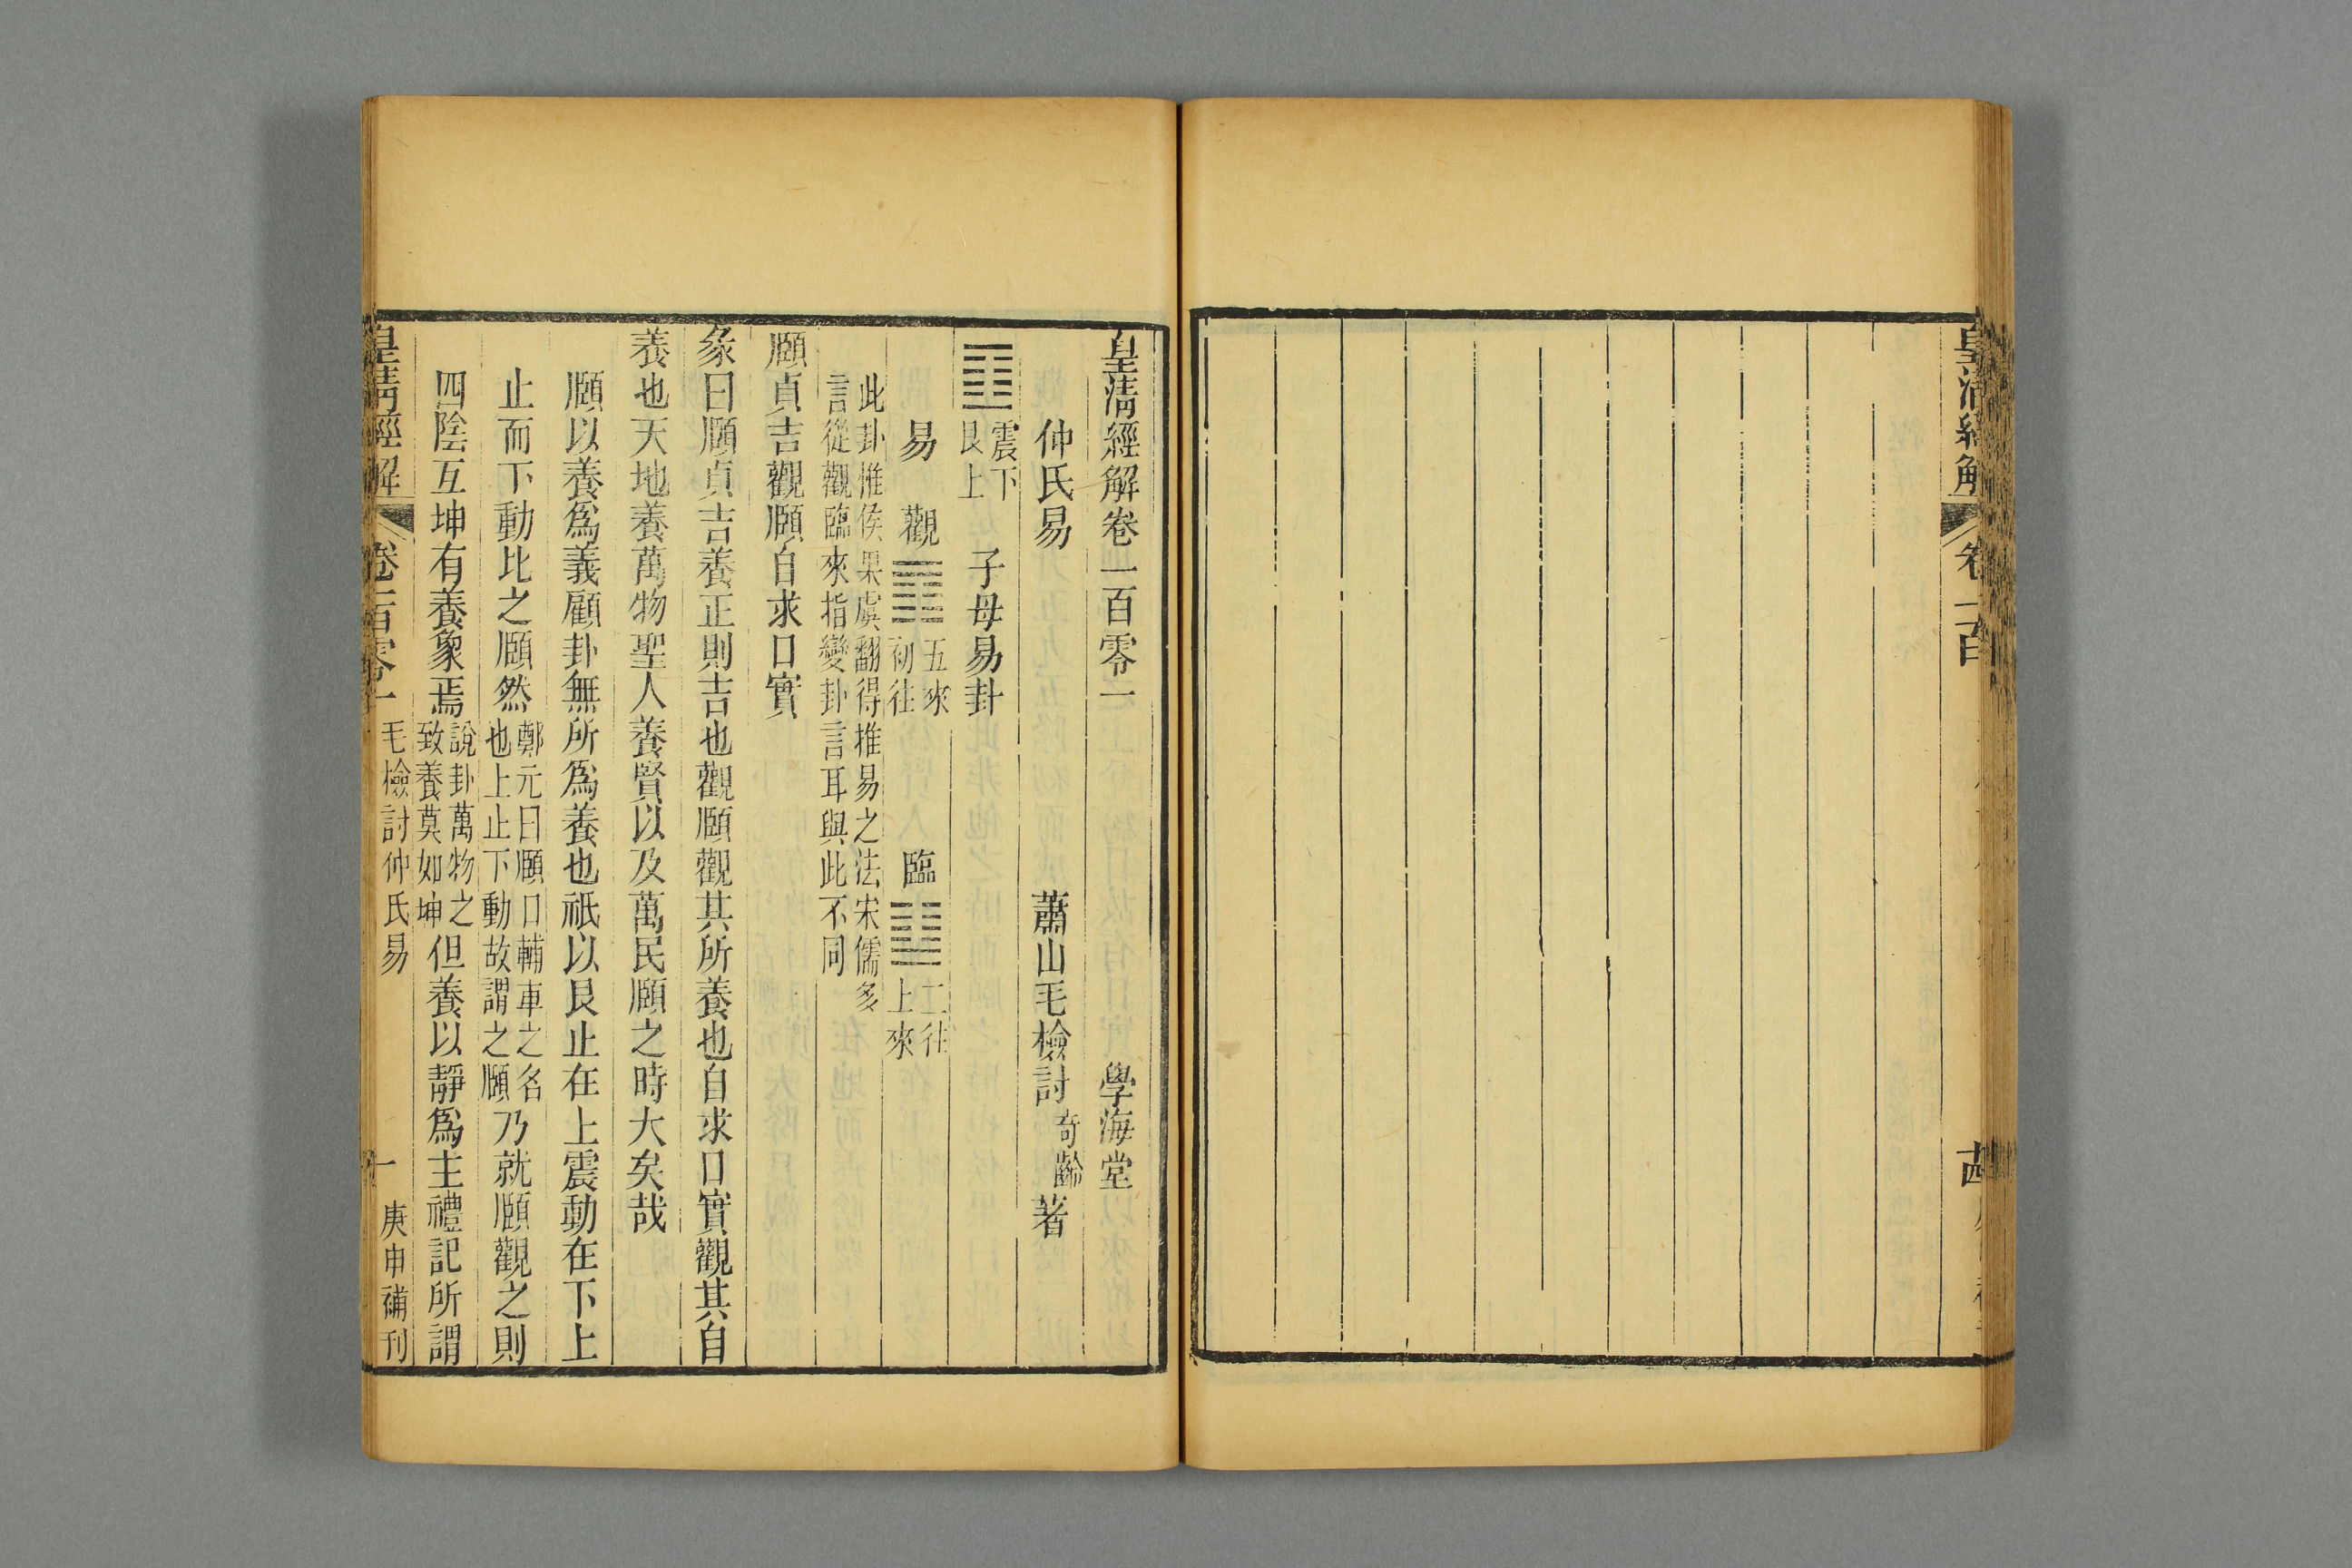 皇清經解
卷一百
皇清經解卷一百零一　學海堂
仲氏易　蕭山毛檢討奇齡著
䷚震下艮上　子母易卦
易　觀䷓五來初往　臨䷒二往上來
此卦推侯果虞翻得推易之法宋儒多
言從觀臨來指變卦言耳與此不同
頤貞吉觀頤自求口實
彖曰頤貞吉養正則吉也觀頤觀其所養也自求口實觀其自
養也天地養萬物聖人養賢以及萬民頤之時大矣哉
頤以養爲義顧卦無所爲養也祇以艮止在上震動在下上
止而下動比之頤然鄭元曰頤口輔車之名也上止下動故謂之頤乃就頤觀之則
四陰互坤有養象焉說卦萬物之致養莫如坤但養以靜爲主禮記所謂
皇清經解　卷一百零一　毛檢討仲氏易　一　庚申補刊